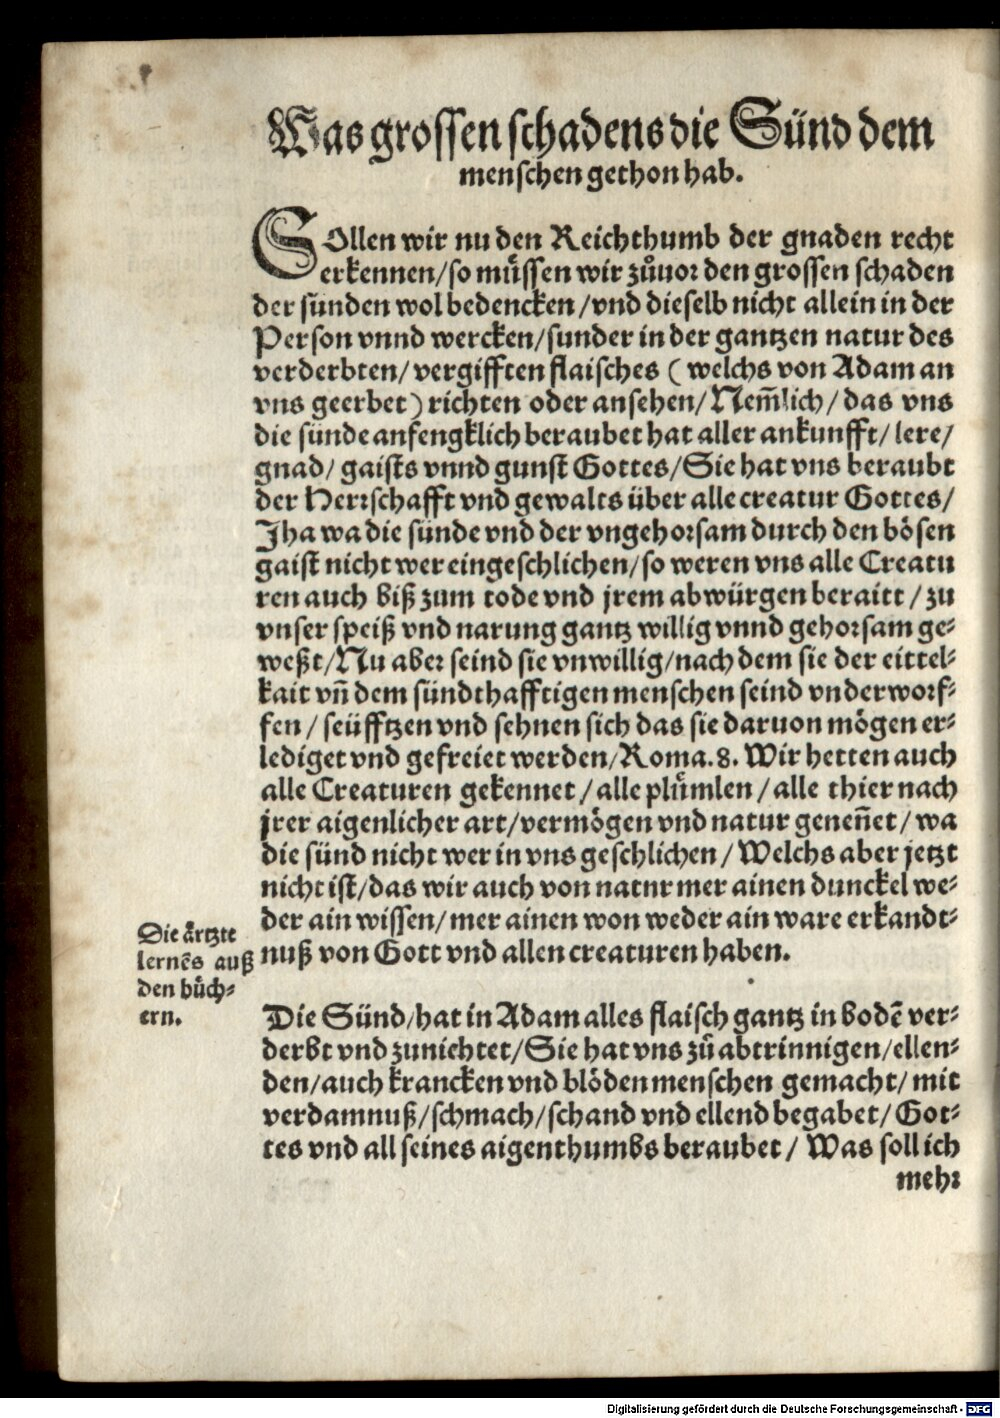 Was grossen schadens die Sünd dem
menschen gethon hab.
SOllen wir nu den Reichthumb der gnaden recht
erkennen/so muͤssen wir zuͦuor den grossen schaden
der sünden wol bedencken/vnd dieselb nicht allein in der
Person vnnd wercken/sunder in der gantzen natur des
verderbten/vergifften flaisches (welchs von Adam an
vns geerbet) richten oder ansehen/Nem̃lich/das vns
die sünde anfengklich beraubet hat aller ankunfft/lere/
gnad/gaists vnnd gunst Gottes/Sie hat vns beraubt
der Herrschafft vnd gewalts über alle creatur Gottes/
Jha wa die sünde vnd der vngehorsam durch den bösen
gaist nicht wer eingeschlichen/so weren vns alle Creatu
ren auch biß zum tode vnd jrem abwürgen beraitt/zu
vnser speiß vnd narung gantz willig vnnd gehorsam ge⸗
weßt/Nu aber seind sie vnwillig/nach dem sie der eittel⸗
kait vn̄ dem sündthafftigen menschen seind vnderworf⸗
fen/seüfftzen vnd sehnen sich das sie daruon mögen er⸗
lediget vnd gefreiet werden/Roma.8. Wir hetten auch
alle Creaturen gekennet/alle pluͤmlen/alle thier nach
jrer aigenlicher art/vermögen vnd natur genen̄et/wa
die sünd nicht wer in vns geschlichen/Welchs aber jetzt
nicht ist/das wir auch von natnr mer ainen dunckel we⸗
der ain wissen/mer ainen won weder ain ware erkandt⸗
nuß von Gott vnd allen creaturen haben.
Die aͤrtzte
lernēs auß
den buͤch⸗
ern.
Die Sünd/hat in Adam alles flaisch gantz in bodē ver⸗
derbt vnd zunichtet/Sie hat vns zuͦ abtrinnigen/ellen⸗
den/auch krancken vnd blöden menschen gemacht/mit
verdamnuß/schmach/schand vnd ellend begabet/Got⸗
tes vnd all seines aigenthumbs beraubet/Was soll ich
mehr
Digitalisierung gefördert durch die Deutsche Forschungsgemeinschaft - DFG